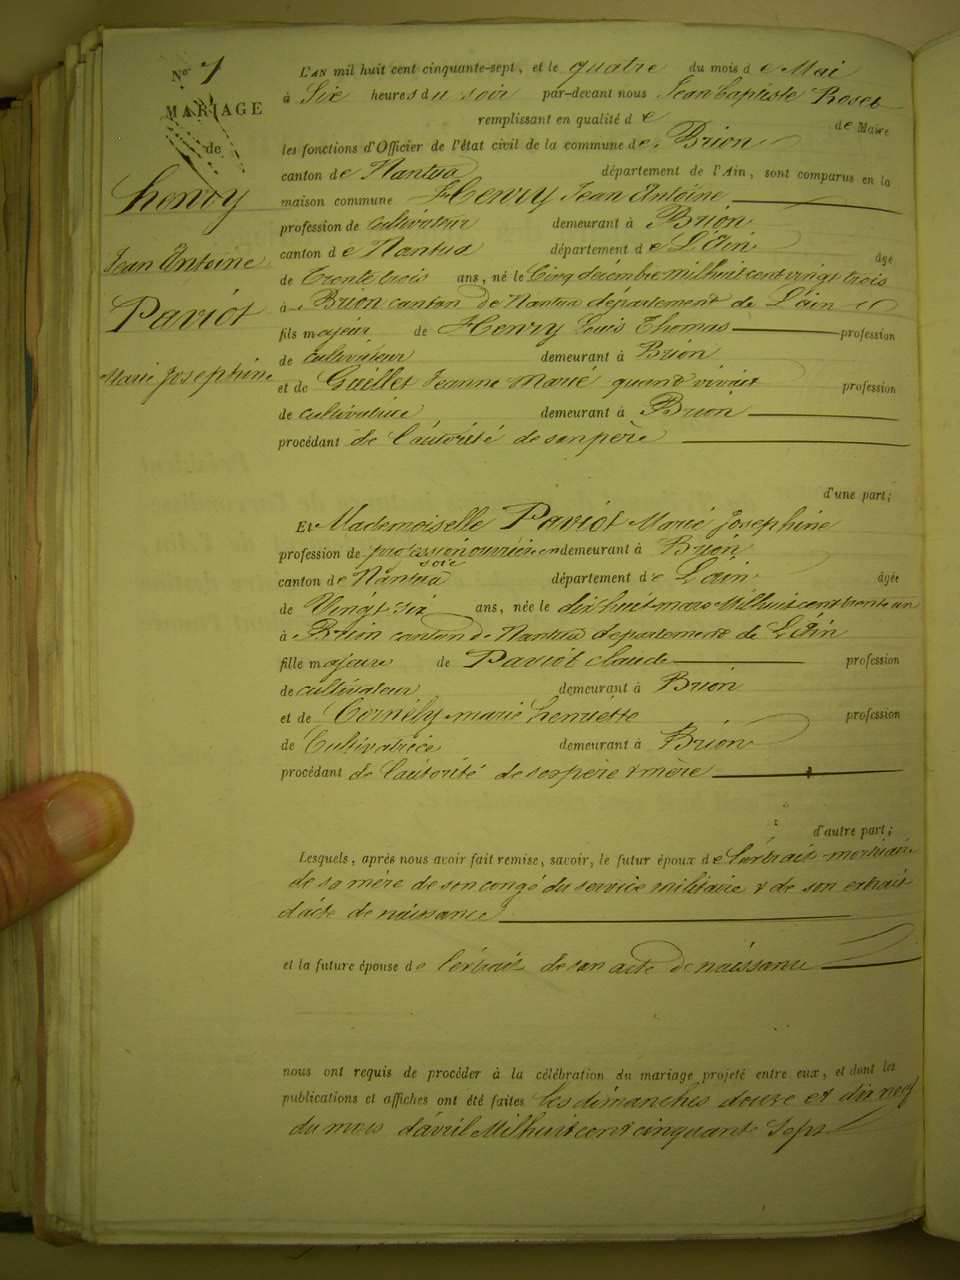 N° 7
MARIAGE
de
henry
Jean Antoine
Paviot
Marie Josephine
L'AN mil huit cent cinquante-sept, et le quatre du mois d e Mai
à Six heures du soir par-devant nous Jean baptiste Roset
remplissant en qualité d e de Maire
les fonctions d'Officier de l'état civil de la commune de Brion
canton de Nantua département de l'Ain, sont comparus en la
maison commune Henry Jean Antoine
profession de cultivateur demeurant à Brion
canton de Nantua département de L'Ain âgé
de trente trois ans, né le Cinq décembre mil huit cent vingt trois
à Brion canton de Nantua département de L'ain
fils majeur de Henry Louis Thomas profession
de cultivateur demeurant à Brion
et de Guillet Jeanne Marie quand vivait profession
de cultivatrice demeurant à Brion
procédant de l'autorité de son père
d'une part;
Et Mademoiselle Paviot Marie Josephine
profession de profession ouvrière en demeurant à Brion
soie
canton de Nantua département de L'ain âgée
de Vingt six ans, née le dix huit mars Mil huit cent trente un
à Brion canton de Nantua département de L'Ain
fille majeure de Paviot claude profession
de cultivateur demeurant à Brion
et de Cornély marie henriette profession
de Cultivatrice demeurant à Brion
procédant de l'autorité de ses père & mère
d'autre part;
Lesquels, après nous avoir fait remise, savoir, le futur époux de l'extrait mortuaire
de sa mère de son congé du service militaire & de son extrait
d'acte de naissance
et la future épouse de l'extrait de son acte de naissance
nous ont requis de procéder à la célébration du mariage projeté entre eux, et dont les
publications et affiches ont été faites les dimanches douze et dix neuf
du mois d'avril Mil huit cent cinquante Sept